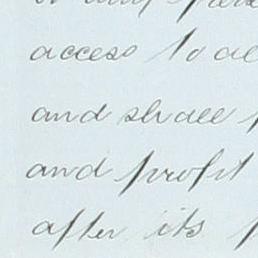 access to
and shall
and profit
after its